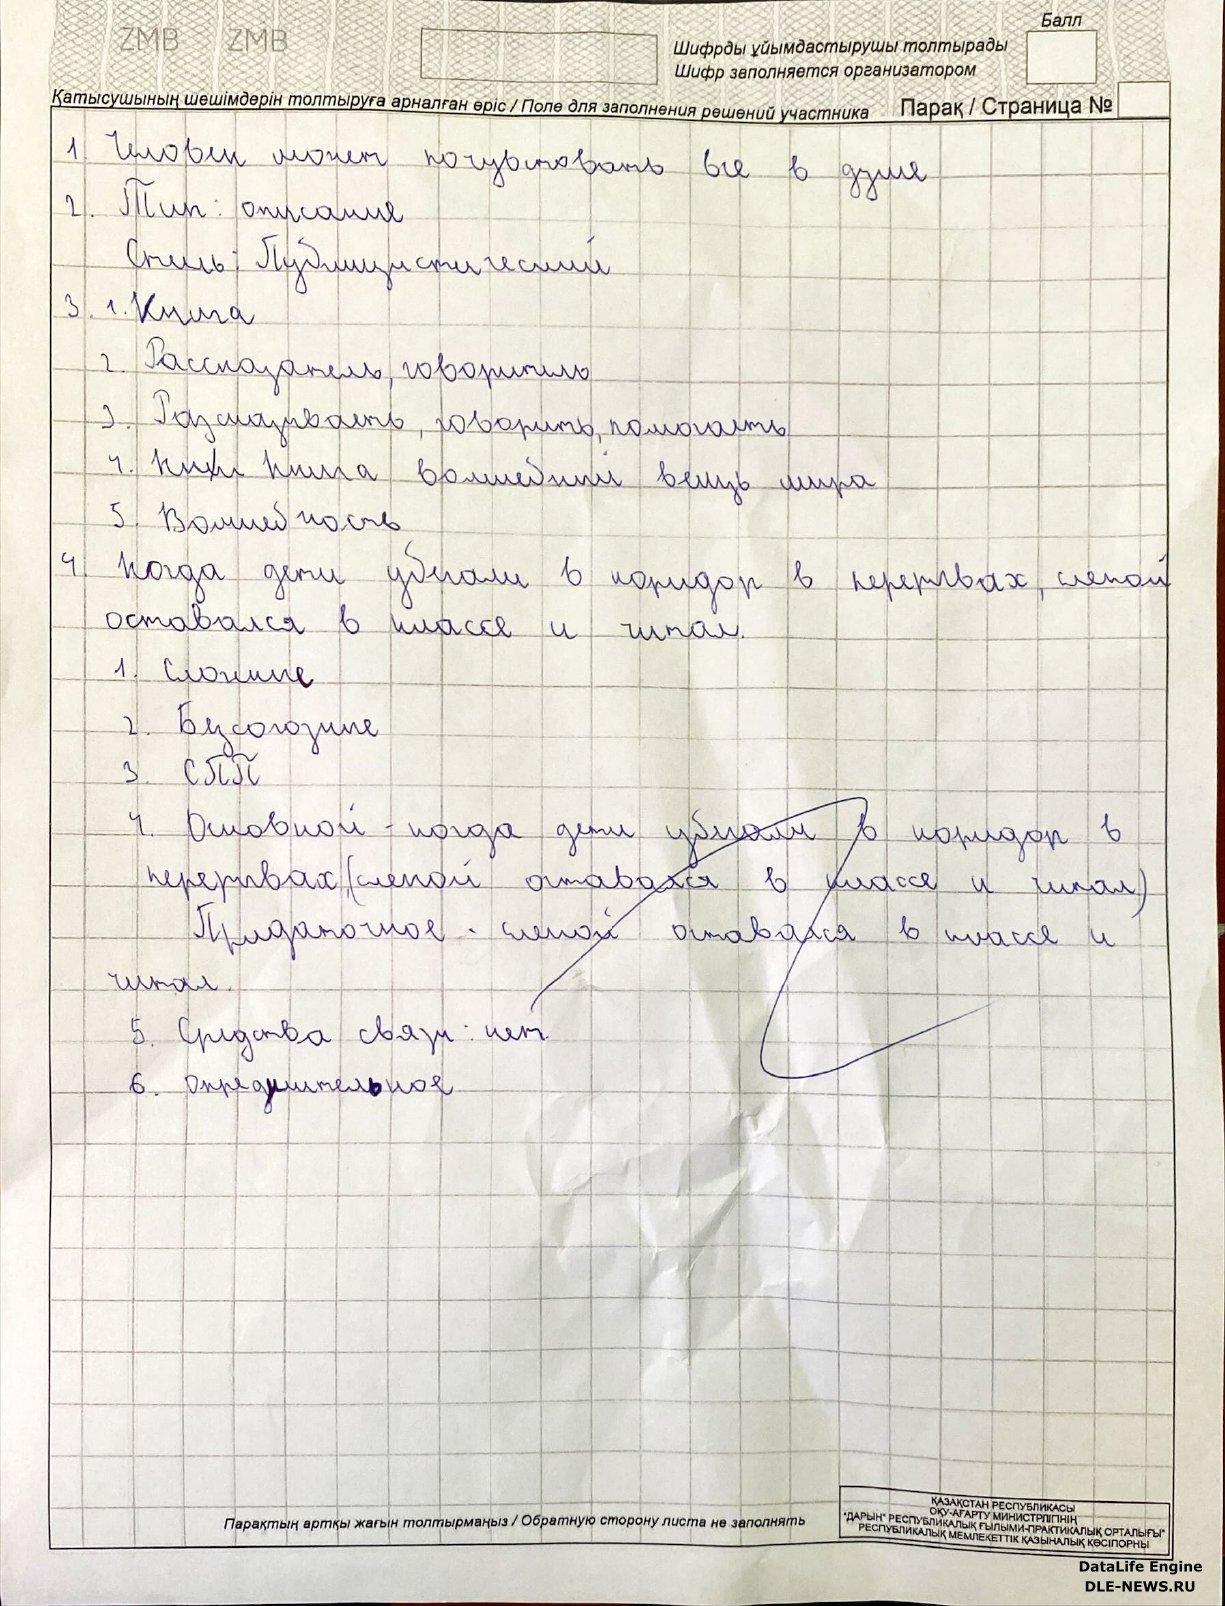 ZMB ZMB
Балл
Шифрды ұйымдастырушы толтырады
Шифр заполняется организатором
Қатысушының шешімдерін толтыруға арналған өріс / Поле для заполнения решений участника Парақ / Страница №
1 Человек может почувствовать все в душе
2. Тип: описания
Стиль: Публицистический
3. 1. Книга
2. Рассказатель, говоритель
3. Разсказывать, говорить, помогать
4. Книга волшебный вещь мира
5. Волшебность
4. Когда дети убегали в коридор в перерывах, слепой
оставался в классе и читал.
1. Сложные
2. Безсоюзные
3. СПП
4. Основной - когда дети убегали в коридор в
перерывах, (слепой оставался в классе и читал)
Придаточное - слепой оставался в классе и
читал.
5. Средства связи: нет.
6. Определительное
Парақтың артқы жағын толтырмаңыз / Обратную сторону листа не заполнять
ҚАЗАҚСТАН РЕСПУБЛИКАСЫ
ОҚУ-АҒАРТУ МИНИСТРЛІГІНІҢ
"ДАРЫН" РЕСПУБЛИКАЛЫҚ ҒЫЛЫМИ-ПРАКТИКАЛЫҚ ОРТАЛЫҒЫ"
РЕСПУБЛИКАЛЫҚ МЕМЛЕКЕТТІК ҚАЗЫНАЛЫҚ КӘСІПОРНЫ
DataLife Engine
DLE-NEWS.RU